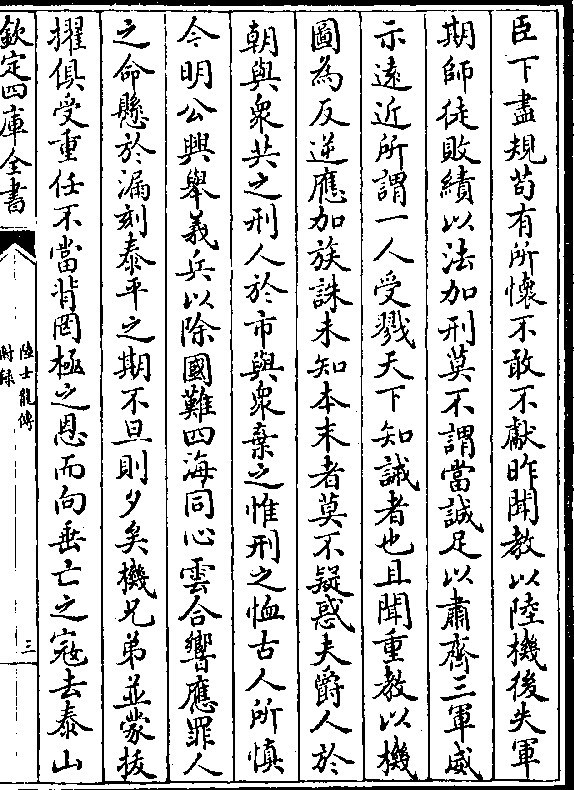 臣下盡規茍有所懷不敢不獻昨聞教以陸機後失軍
期師徒敗績以法加刑莫不謂當誠足以肅齊三軍威
示遠近所謂一人受戮天下知誡者也且聞重教以機
圖為反逆應加族誅未知本末者莫不疑惑夫爵人於
朝與衆共之刑人於市與衆棄之惟刑之恤古人所慎
今明公興舉義兵以除國難四海同心雲合響應罪人
之命懸於漏刻泰平之期不旦則夕矣機兄弟並蒙拔
擢俱受重任不當背罔極之恩而向垂亡之寇去泰山
欽定四庫全書
陸士龍傳
附錄
三